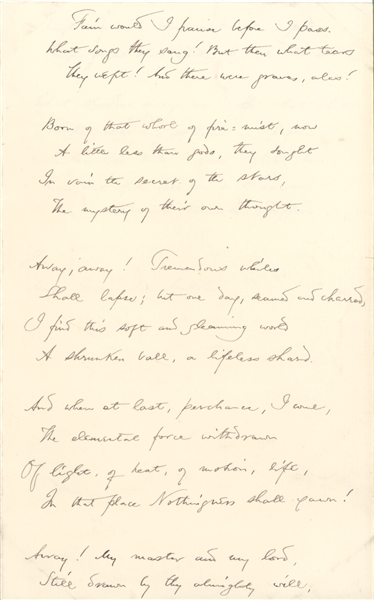 Fain would I pause before I pass.
What songs they sang! But then what tears
They wept! And there were graves, alas!
Born of that whorl of fire-mist, now
A little less than gods, they sought
In vain the secret of the stars,
The mystery of their own thought.
Away, away! Tremendous whiles
Shall lapse; but one day, seamed and charred,
I find this soft and gleaming world
A shrunken ball, a lifeless shard.
And when at last, perchance, I come,
The elemental force withdrawn
Of light, of heat, of motion, life,
In that place Nothingness shall yawn!
Away! My master and my lord,
Still drawn by thy almighty will,